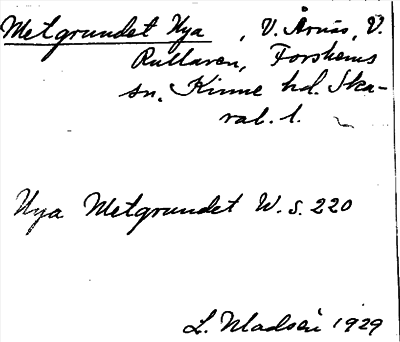 Metgrundet Nya, V. Årnäs, V.
Rullaren, Forshems
sn, Kinne hd. Ska-
rab. l.
Nya Metgrundet W. s. 220
L. Madsén 1929